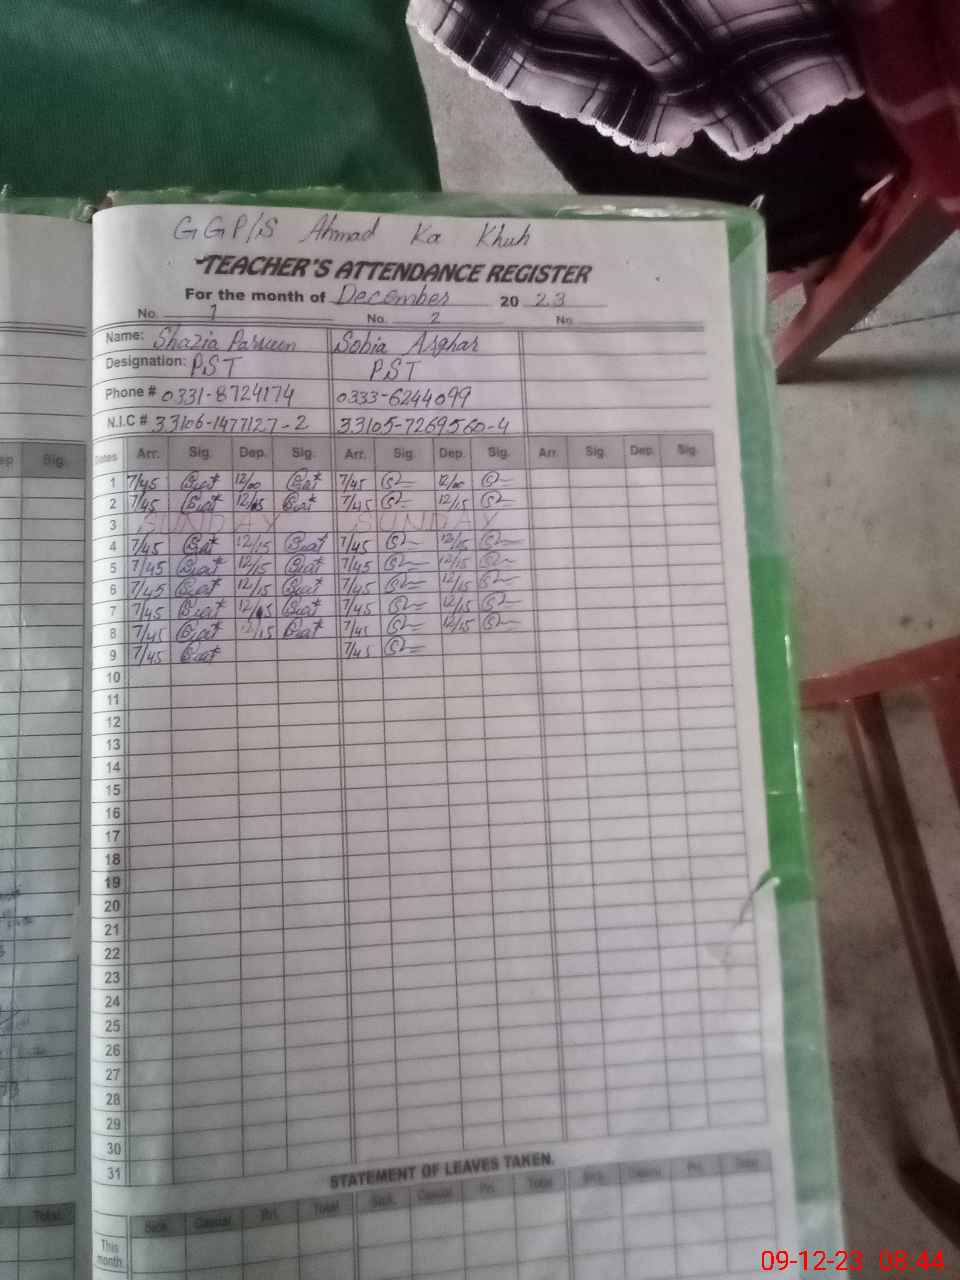 GGP/S Ahmad Ka Khuh
TEACHER'S ATTENDANCE REGISTER
For the month of December 20 23
No. 1 No. 2 No.
Name: Shazia Parveen Sobia Asghar
Designation: PST PST
Phone # 0331-8724174 0333-6244099
N.I.C # 33106-1477127-2 33105-7269560-4
Dates Arr. Sig. Dep. Sig. Arr. Sig. Dep. Sig. Arr. Sig. Dep. Sig.
1 7/45 12/00 7/45 12/00
2 7/45 12/15 7/45 12/15
3 SUNDAY SUNDAY
4 7/45 12/15 7/45 12/15
5 7/45 12/15 7/45 12/15
6 7/45 12/15 7/45 12/15
7 7/45 12/15 7/45 12/15
8 7/45 12/15 7/45 12/15
9 7/45 7/45
10
11
12
13
14
15
16
17
18
19
20
21
22
23
24
25
26
27
28
29
30
31
STATEMENT OF LEAVES TAKEN.
Sick. Casual Pri. Total Sick. Casual Pri. Total Sick. Casual Pri. Total
This month
ep Sig.
Total
09-12-23 08:44